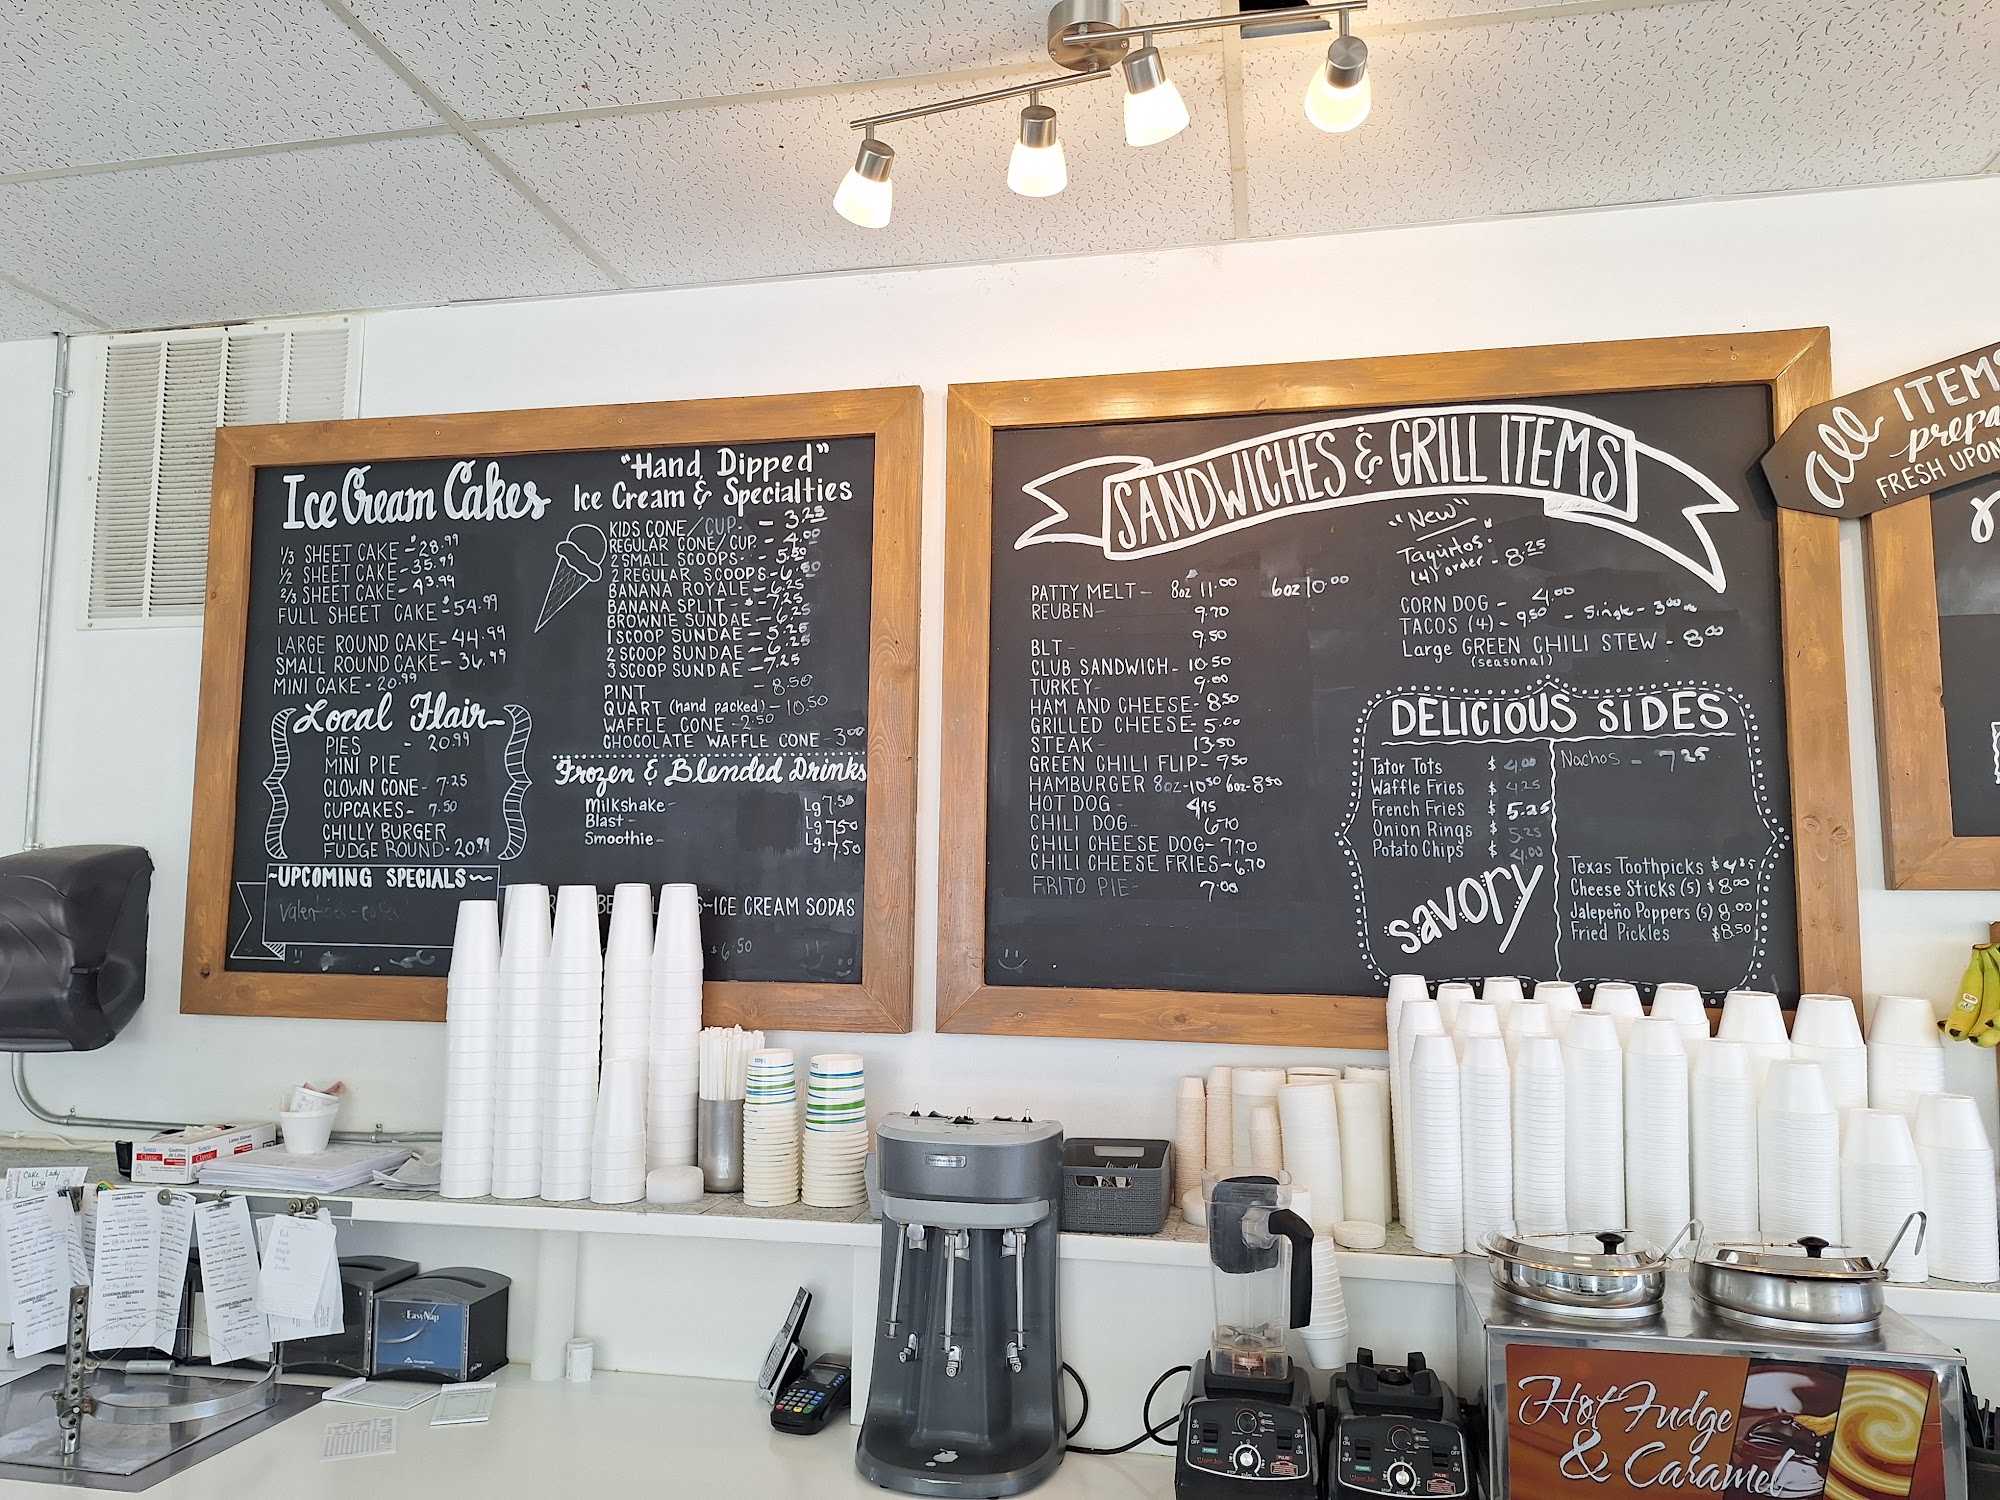 Ice Cream Cakes
1/3 SHEET CAKE - $28.99
1/2 SHEET CAKE - 35.99
2/3 SHEET CAKE - 43.99
FULL SHEET CAKE - $54.99
LARGE ROUND CAKE - 44.99
SMALL ROUND CAKE - 36.99
MINI CAKE - 20.99
Local Flair
PIES - 20.99
MINI PIE
CLOWN CONE - 7.25
CUPCAKES - 7.50
CHILLY BURGER
FUDGE ROUND - 20.99
~UPCOMING SPECIALS~
"Hand Dipped"
Ice Cream & Specialties
KIDS CONE/CUP - 3.25
REGULAR CONE/CUP - 4.00
2 SMALL SCOOPS - 5.50
2 REGULAR SCOOPS - 6.50
BANANA ROYALE - 6.25
BANANA SPLIT - 7.25
BROWNIE SUNDAE - 6.25
1 SCOOP SUNDAE - 5.25
2 SCOOP SUNDAE - 6.25
3 SCOOP SUNDAE - 7.25
PINT - 8.50
QUART (hand packed) - 10.50
WAFFLE CONE - 2.50
CHOCOLATE WAFFLE CONE - 3.00
Frozen & Blended Drinks
Milkshake - Lg 7.50
Blast - Lg 7.50
Smoothie - Lg. 7.50
ICE CREAM SODAS
$6.50
SANDWICHES & GRILL ITEMS
PATTY MELT - 8oz 11.00 6oz 10.00
REUBEN - 9.70
BLT - 9.50
CLUB SANDWICH - 10.50
TURKEY - 9.00
HAM AND CHEESE - 8.50
GRILLED CHEESE - 5.00
STEAK - 13.50
GREEN CHILI FLIP - 9.50
HAMBURGER 8oz - 10.50 6oz - 8.50
HOT DOG - 4.75
CHILI DOG - 6.70
CHILI CHEESE DOG - 7.70
CHILI CHEESE FRIES - 6.70
FRITO PIE - 7.00
"New"
Taquitos:
(4) order - 8.25
CORN DOG - 4.00
TACOS (4) - 9.50 - Single - 3.00
Large GREEN CHILI STEW - 8.00
(seasonal)
DELICIOUS SIDES
Tator Tots $ 4.00
Waffle Fries $ 4.25
French Fries $ 5.25
Onion Rings $ 5.25
Potato Chips $ 4.00
savory
Nachos - 7.25
Texas Toothpicks $ 4.25
Cheese Sticks (5) $ 8.00
Jalepeño Poppers (5) 8.00
Fried Pickles $8.50
All ITEMS
prepa
FRESH UPON
Cake Lady
Lisa
EasyNap
Hot Fudge
& Caramel